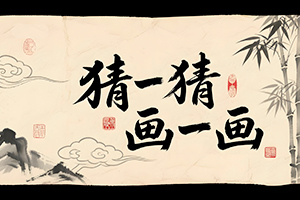 猜一猜
画一画